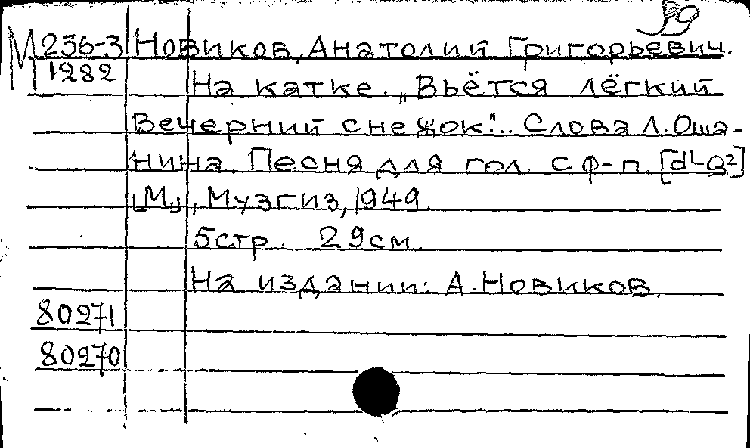 59
М 236-3 Новиков, Анатолий Григорьевич.
1282 На катке. „Вьётся лёгкий
вечерний снежок". Слова Л. Оша-
нина. Песня для гол. с ф-п. [d¹-g²]
[М.], Музгиз, 1949.
5 стр. 29 см.
На издании: А. Новиков.
80271
80270